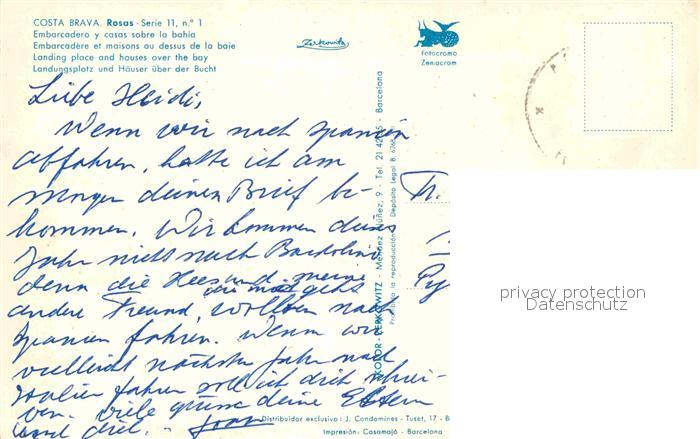 COSTA BRAVA. Rosas - Serie 11, n.° 1
Embarcadero y casas sobre la bahía
Embarcadère et maisons au dessus de la baie
Landing place and houses over the bay
Landungsplatz und Häuser über der Bucht
Zerkowitz
Fotocromo
Zenacrom
Liebe Heidi,
Wenn wir nach Spanien
abfahren, hatte ich am
morgen deinen Brief be-
kommen. Wir kommen dieses
Jahr nicht nach Bardolino
denn die und meine
andere Freund, wollten nach
Spanien fahren. Wenn wir
vielleicht nächstes Jahr nach
Italien fahren soll ich dich schrei-
ben. viele grüsse deine Eltern
und dich. -
KOLOR-ZERKOWITZ - Méndez Núñez, 9 - Tel. 21 42 - Barcelona
Prohibida la reproducción - Depósito Legal B.
privacy protection
Datenschutz
Distribuidor exclusivo: J. Condomines - Tuset, 17 - B
Impresión: Casamajó - Barcelona